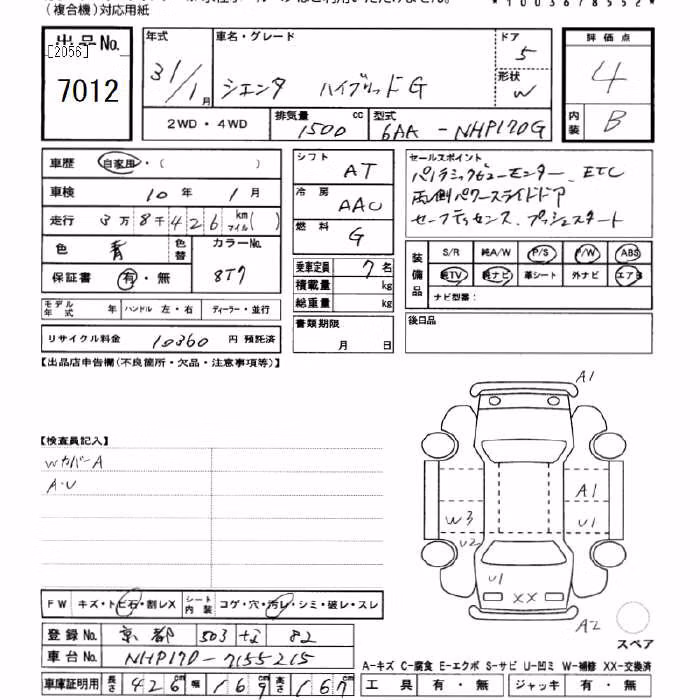 (複合機)対応用紙
出品No.
[2056]
7012
年式 31/1月
車名・グレード シエンタ ハイブリッドG
ドア 5
形状 W
評価点 4
内装 B
2WD・4WD
排気量 1500 cc
型式 6AA-NHP170G
車歴 自家用・( )
車検 10年 1月
走行 3万8千426 km マイル( )
色 青 色替 カラーNo. 8T7
保証書 有・無
モデル年式 年 ハンドル 左・右 ディーラー・並行
リサイクル料金 10360 円 預託済
シフト AT
冷房 AAC
燃料 G
乗車定員 7名
積載量 kg
総重量 kg
書類期限 月 日
セールスポイント
パノラミックビューモニター、ETC
両側パワースライドドア
セーフティセンス、プッシュスタート
装備品 S/R 純A/W P/S P/W ABS
純TV 純ナビ 革シート 外ナビ エアB
ナビ型番:
後日品
【出品店申告欄(不良箇所・欠品・注意事項等)】
【検査員記入】
WカバーA
A・U
A1
A1
W3
U1
U2
U1
XX
A2
スペア
FW キズ・トビ石・割レX シート内装 コゲ・穴・汚レ・シミ・破レ・スレ
登録No. 京都 503 82
車台No. NHP170-7155215
車庫証明用 長さ 426cm 幅 169cm 高さ 167cm
A-キズ C-腐食 E-エクボ S-サビ U-凹ミ W-補修 XX-交換済
工具 有・無 ジャッキ 有・無